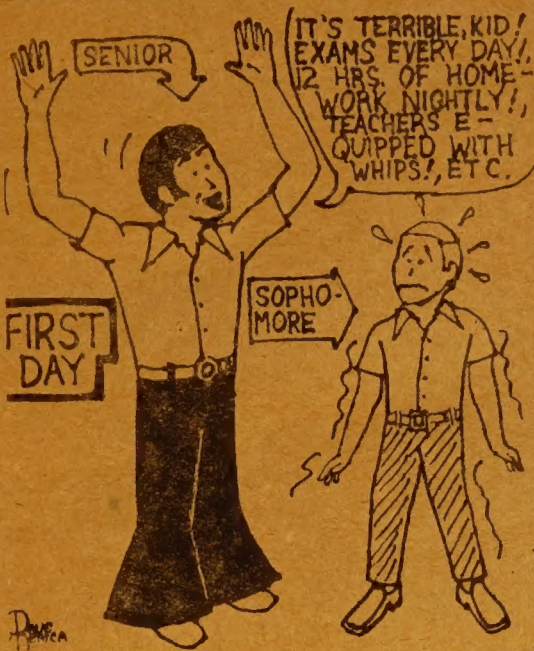 SENIOR
IT'S TERRIBLE, KID!
EXAMS EVERY DAY!,
12 HRS. OF HOME-
WORK NIGHTLY!,
TEACHERS E-
QUIPPED WITH
WHIPS!, ETC.
SOPHO-
MORE
FIRST
DAY